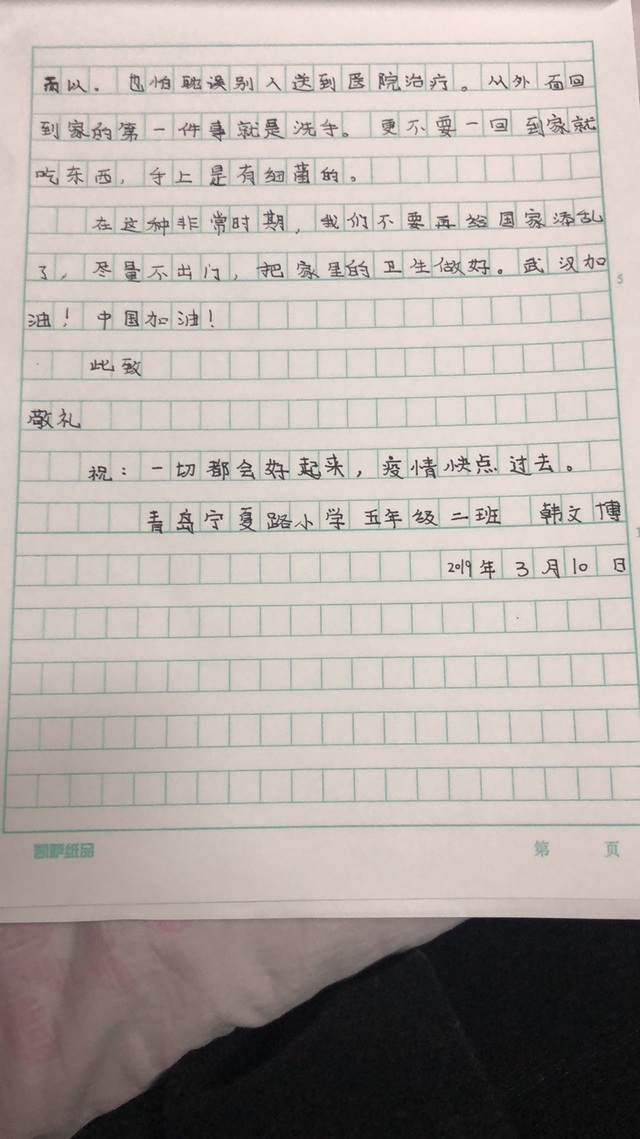 而以。也怕耽误别人送到医院治疗。从外面回
到家的第一件事就是洗手。更不要一回到家就
吃东西，手上是有细菌的。
在这种非常时期，我们不要再给国家添乱
了，尽量不出门，把家里的卫生做好。武汉加
油！中国加油！
此致
敬礼
祝：一切都会好起来，疫情快点过去。
青岛宁夏路小学五年级二班 韩文博
2019年3月10日
凯萨纸品
第 页
5
1